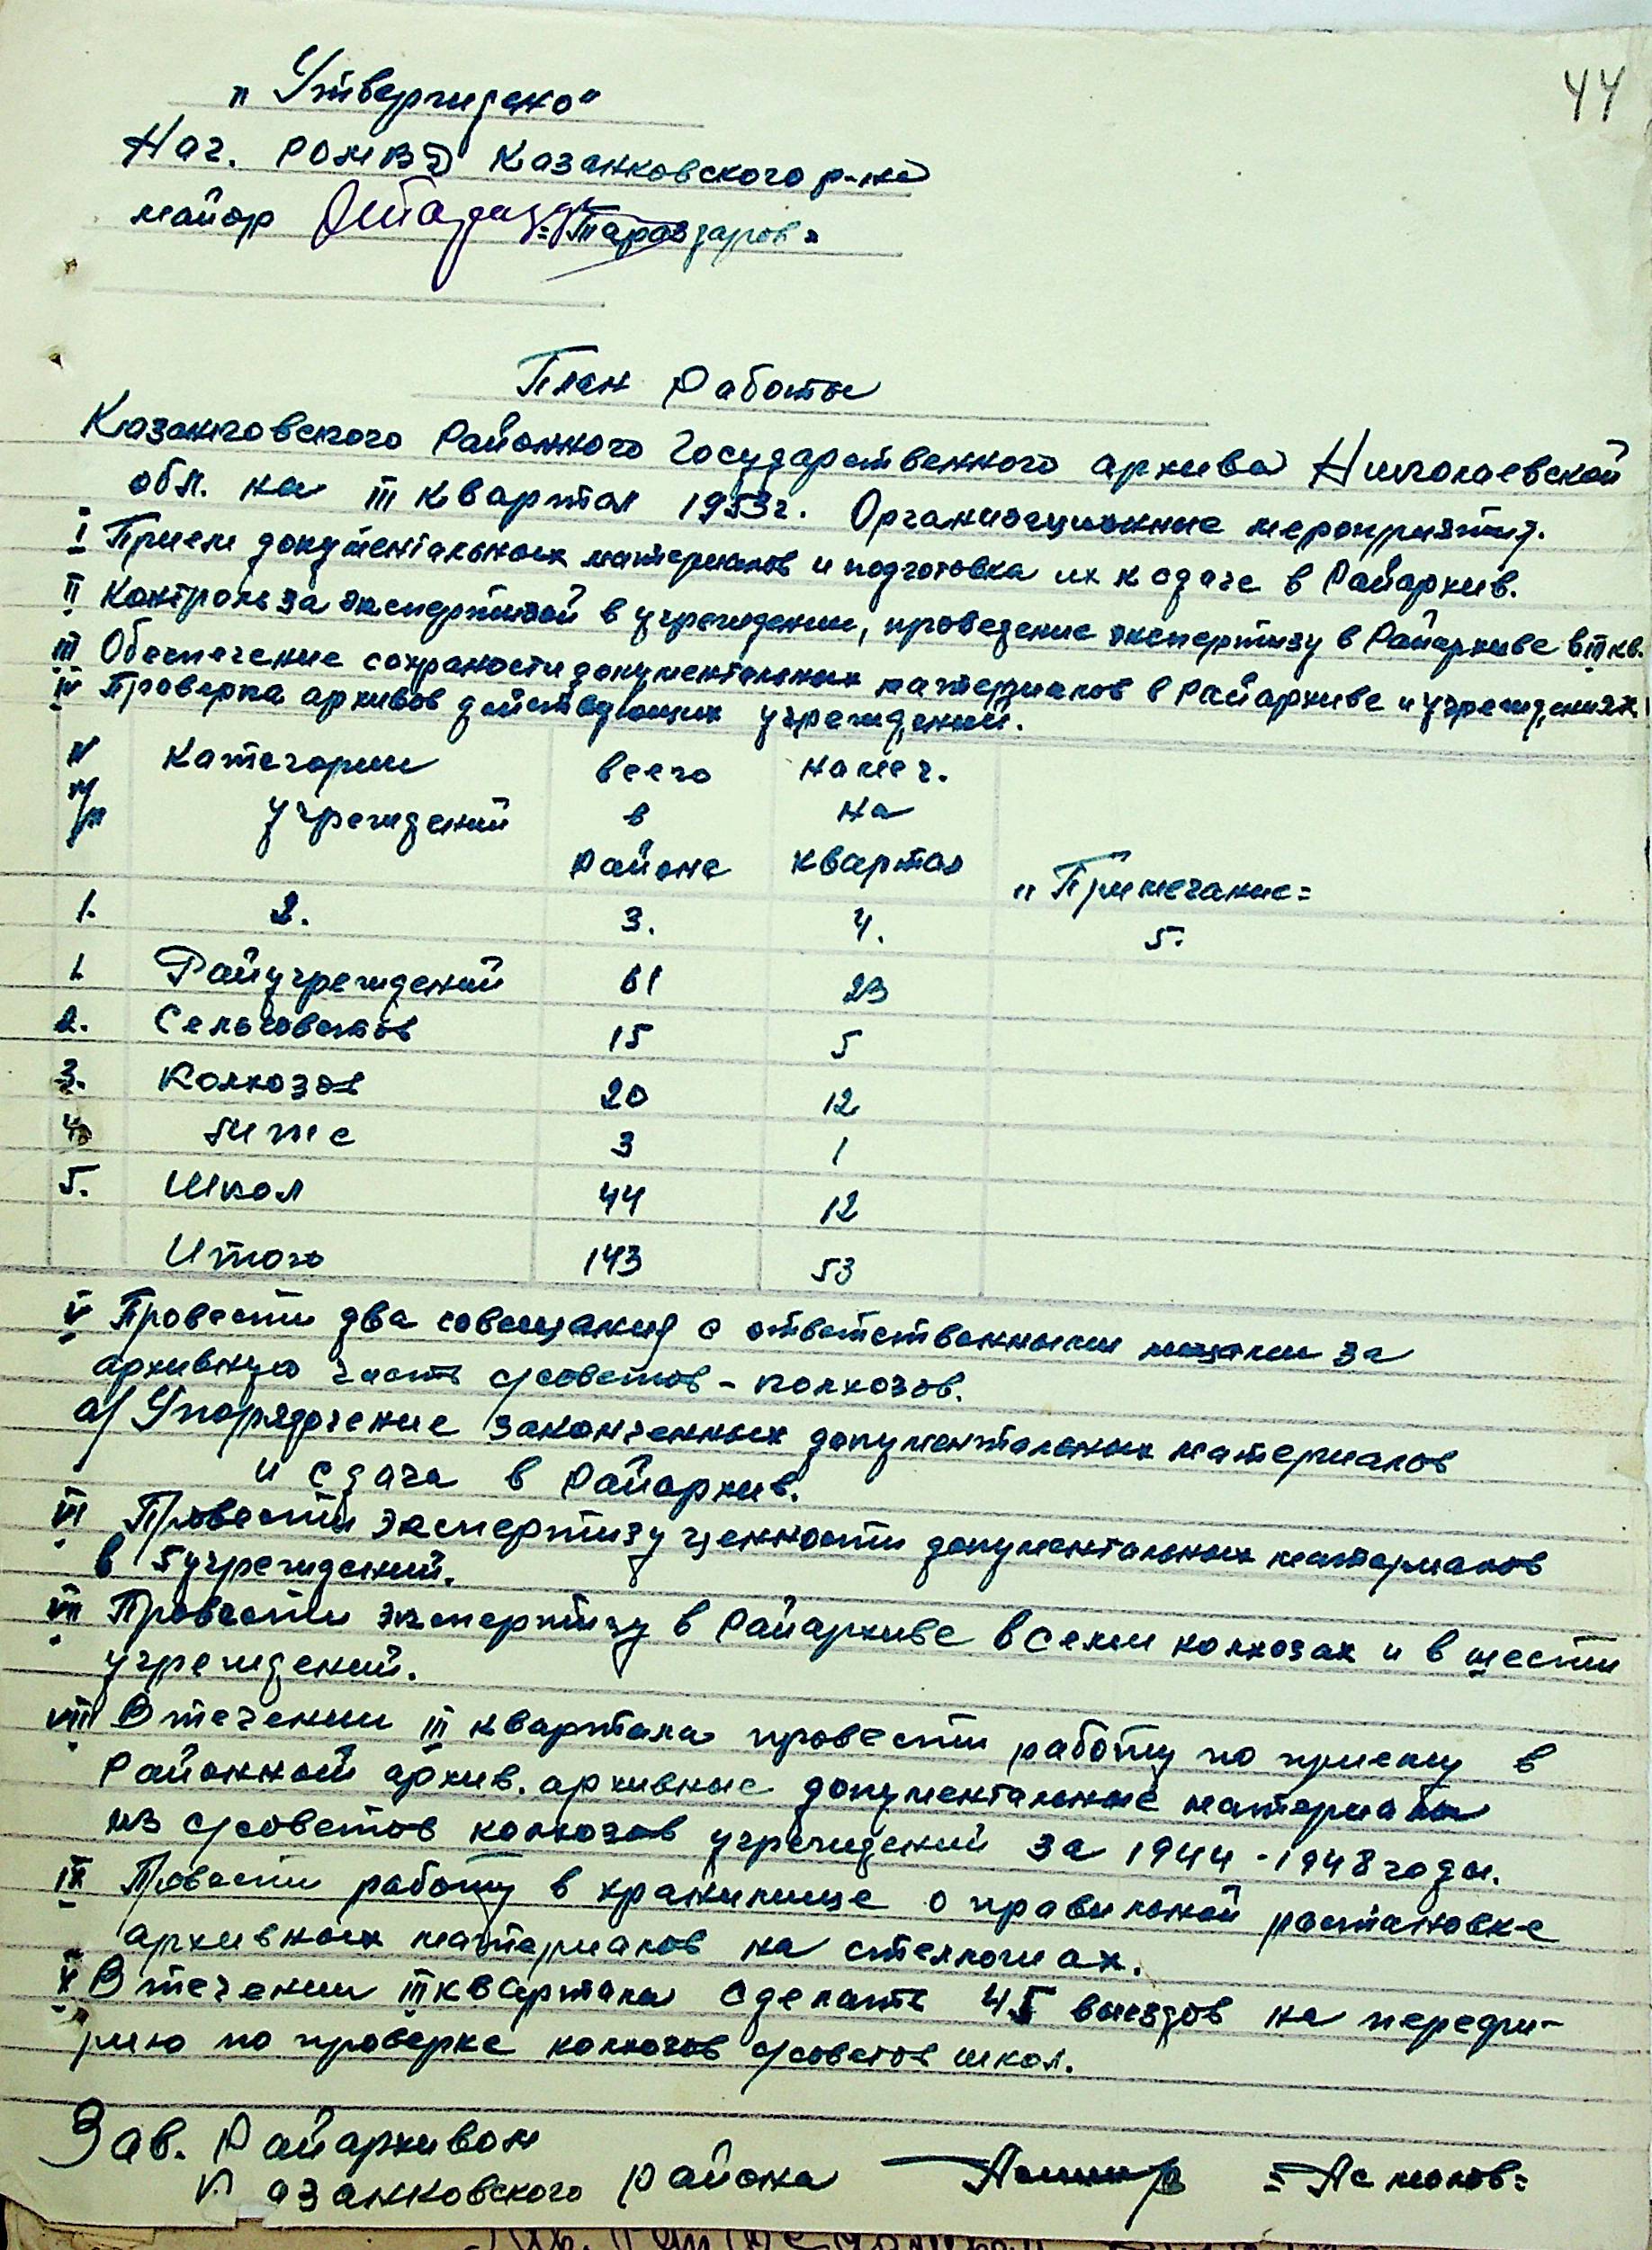 44
„Утверждено“
Нач. РОМВД Казанковского р-на
майор =Тараздаров=
План Работы
Казанковского Районного Государственного архива Николаевской
обл. на III квартал 1953 г. Организационные мероприятия.
I Прием документальных материалов и подготовка их к сдаче в Райархив.
II Контроль за экспертизой в учреждении, проведение экспертизу в Райархиве в III кв.
III Обеспечение сохраности документальных материалов в Райархиве и учреждениях.
IV Проверка архивов действующих учреждений.
№ Категории всего намеч.
п/п учреждений в на
Районе квартал „Примечание=
1. 2. 3. 4. 5.
1. Райучреждений 61 23
2. Сельсоветов 15 5
3. Колхозов 20 12
4. МТС 3 1
5. Школ 44 12
Итого 143 53
V Провести два совещания с ответственными лицами за
архивную часть с/советов - колхозов.
а/ Упорядочение законченных документальных материалов
и сдача в Райархив.
VI Провести экспертизу ценности документальных материалов
в 5 учреждений.
VII Провести экспертизу в Райархиве в семи колхозах и в шести
учреждений.
VIII В течении III квартала провести работу по приему в
Районный архив. архивные документальные материалы
из с/советов колхозов учреждений за 1944 - 1948 годы.
IX Провести работу в хранилище о правильной растановке
архивных материалов на стеллажах.
X В течении III квартала сделать 45 выездов на перефи-
рию по проверке колхозов с/советов школ.
Зав. Райархивом
Казанковского района =Асмолов=